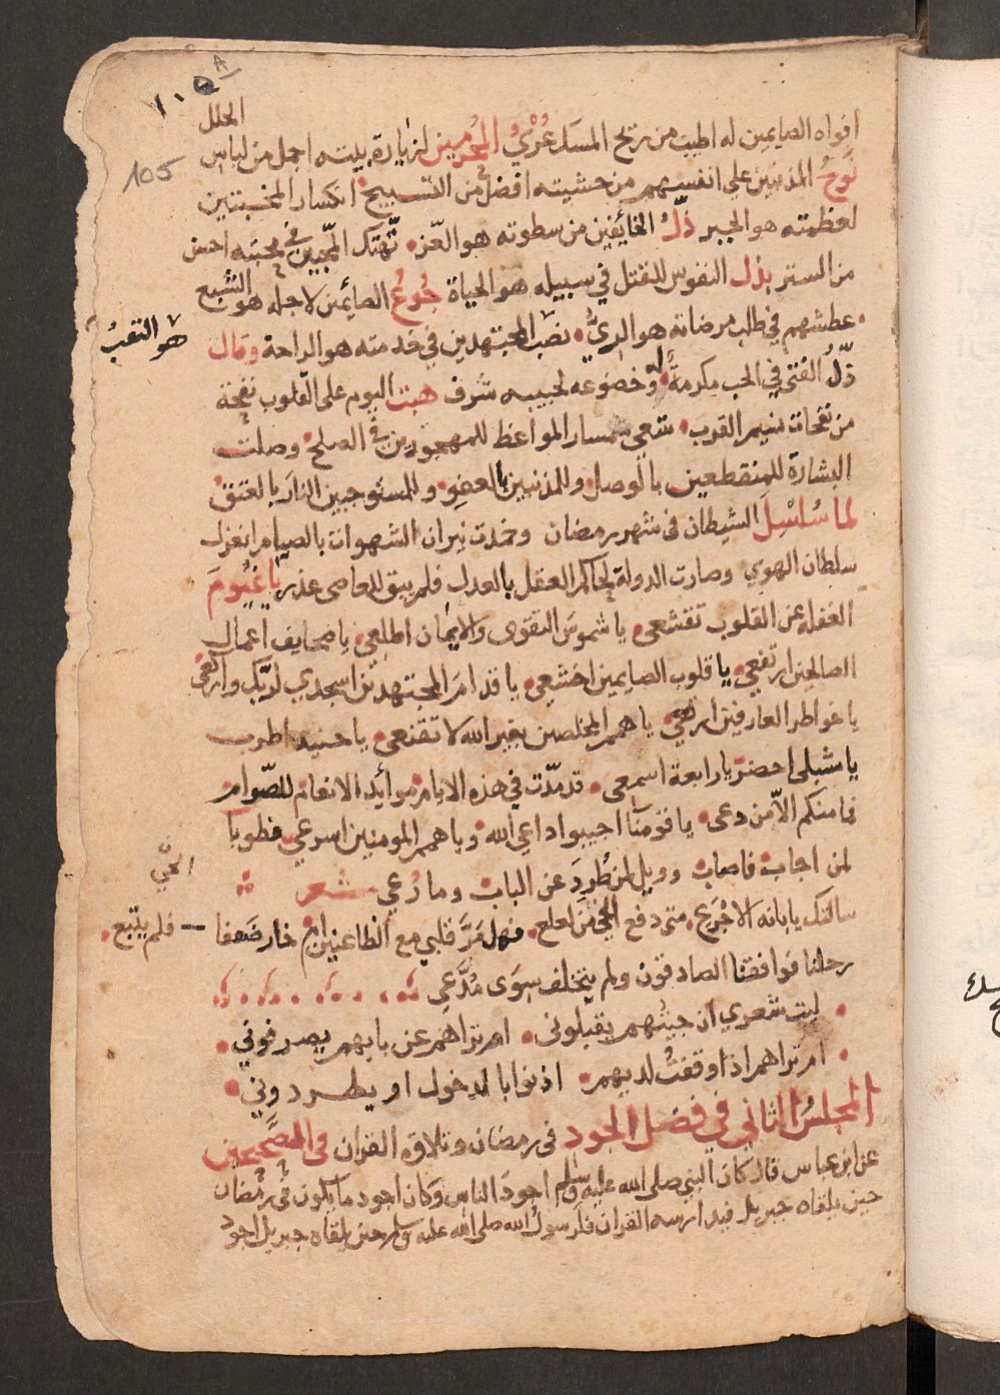 ١٠٥
A
105
الحلل
افواه الصايمين له اطيب من ريح المسك عُرْيُ المحرمين لزيارة بيته اجمل من لباس
نَوحُ المذنبين على انفسهم من خشيته افضل من التسبيح انكسار المخبتين
لعظمته هو الجبر ذلُّ الخائفين من سطوته هو العّز تهتك المحبين في محبته احسن
من الستر بذل النفوس للقتل في سبيله هو الحياة جُوعُ الصائمين لاجله هو الشبع
عطشهم في طلب مرضاته هو الريُّ نصَبُ المجتهدين في خدمته هو الراحة وقال
هو التعبُ
ذلُّ الفتى في الحب مكرمةٌ وخضوعه لحبيبه شرف هبت اليوم على القلوب نفحة
من نفحات نسيم القرب سعى سمسار المواعظ للمهجورين في الصلح وصلت
البشارة للمنقطعين بالوصل وللمذنبين بالعفو وللمستوجبين النار بالعتق
لما سُلسِلَ الشيطان فى شهر رمضان وخمدت نيران الشهوات بالصيام انعزل
سلطان الهوي وصارت الدولة لحاكم العقل بالعدل فلم يبق للعاصى عذر ياغيُومَ
الغفله عن القلوب تقشعى يا شموسَ التقوى والايمان اطلعى يا صحايف اعمال
الصالحين ارتفعي يا قلوب الصايمين اخشعي يا قدامَ المجتهدين اسجدي لربّك واركعى
يا خواطر العارفين ارتعي يا همم المخلصين بغير الله لا تقنعى يا جنيد اطرب
يا شبلى احضر يا رابعة اسمعى قد مدّت في هذه الايام موائد الانعام للصّوام
فما منكم الاّ من دعى يا قومنا اجيبوا داعي الله ويا همم المومنين اسرعي فطوبا
لمن اجاب فاصاب وويل لمن طُرِدَ عن الباب وما دُعي شعر
سالتك يا بانه الاجْرَع متى دفع الحي من لعلع فهل مَرَّ قلبي مع الظاعنين ام خار ضعفا فلم يتبع
رحلنا فوافقنا الصادقون ولم يتخلف سِوَى مُدَّعي
ليت شعري ان جيتهم يقبلونى ام تراهم عن بابهم يصرفوني
ام تراهم اذا وقفتُ لديهم اذنوا بالدخول او يطردوني
المجلسُ الثاني في فضل الجود فى رمضان وتلاوة القران فى الصحيحين
عن ابن عباس قال كان النبي صلى الله عليه وسلم اجودَ الناس وكان اجود ما يكون في رمضان
حين يلقاه جبريل فيدارسه القران فلرسول الله صلى الله عليه وسلم حين يلقاه جبريل اجود